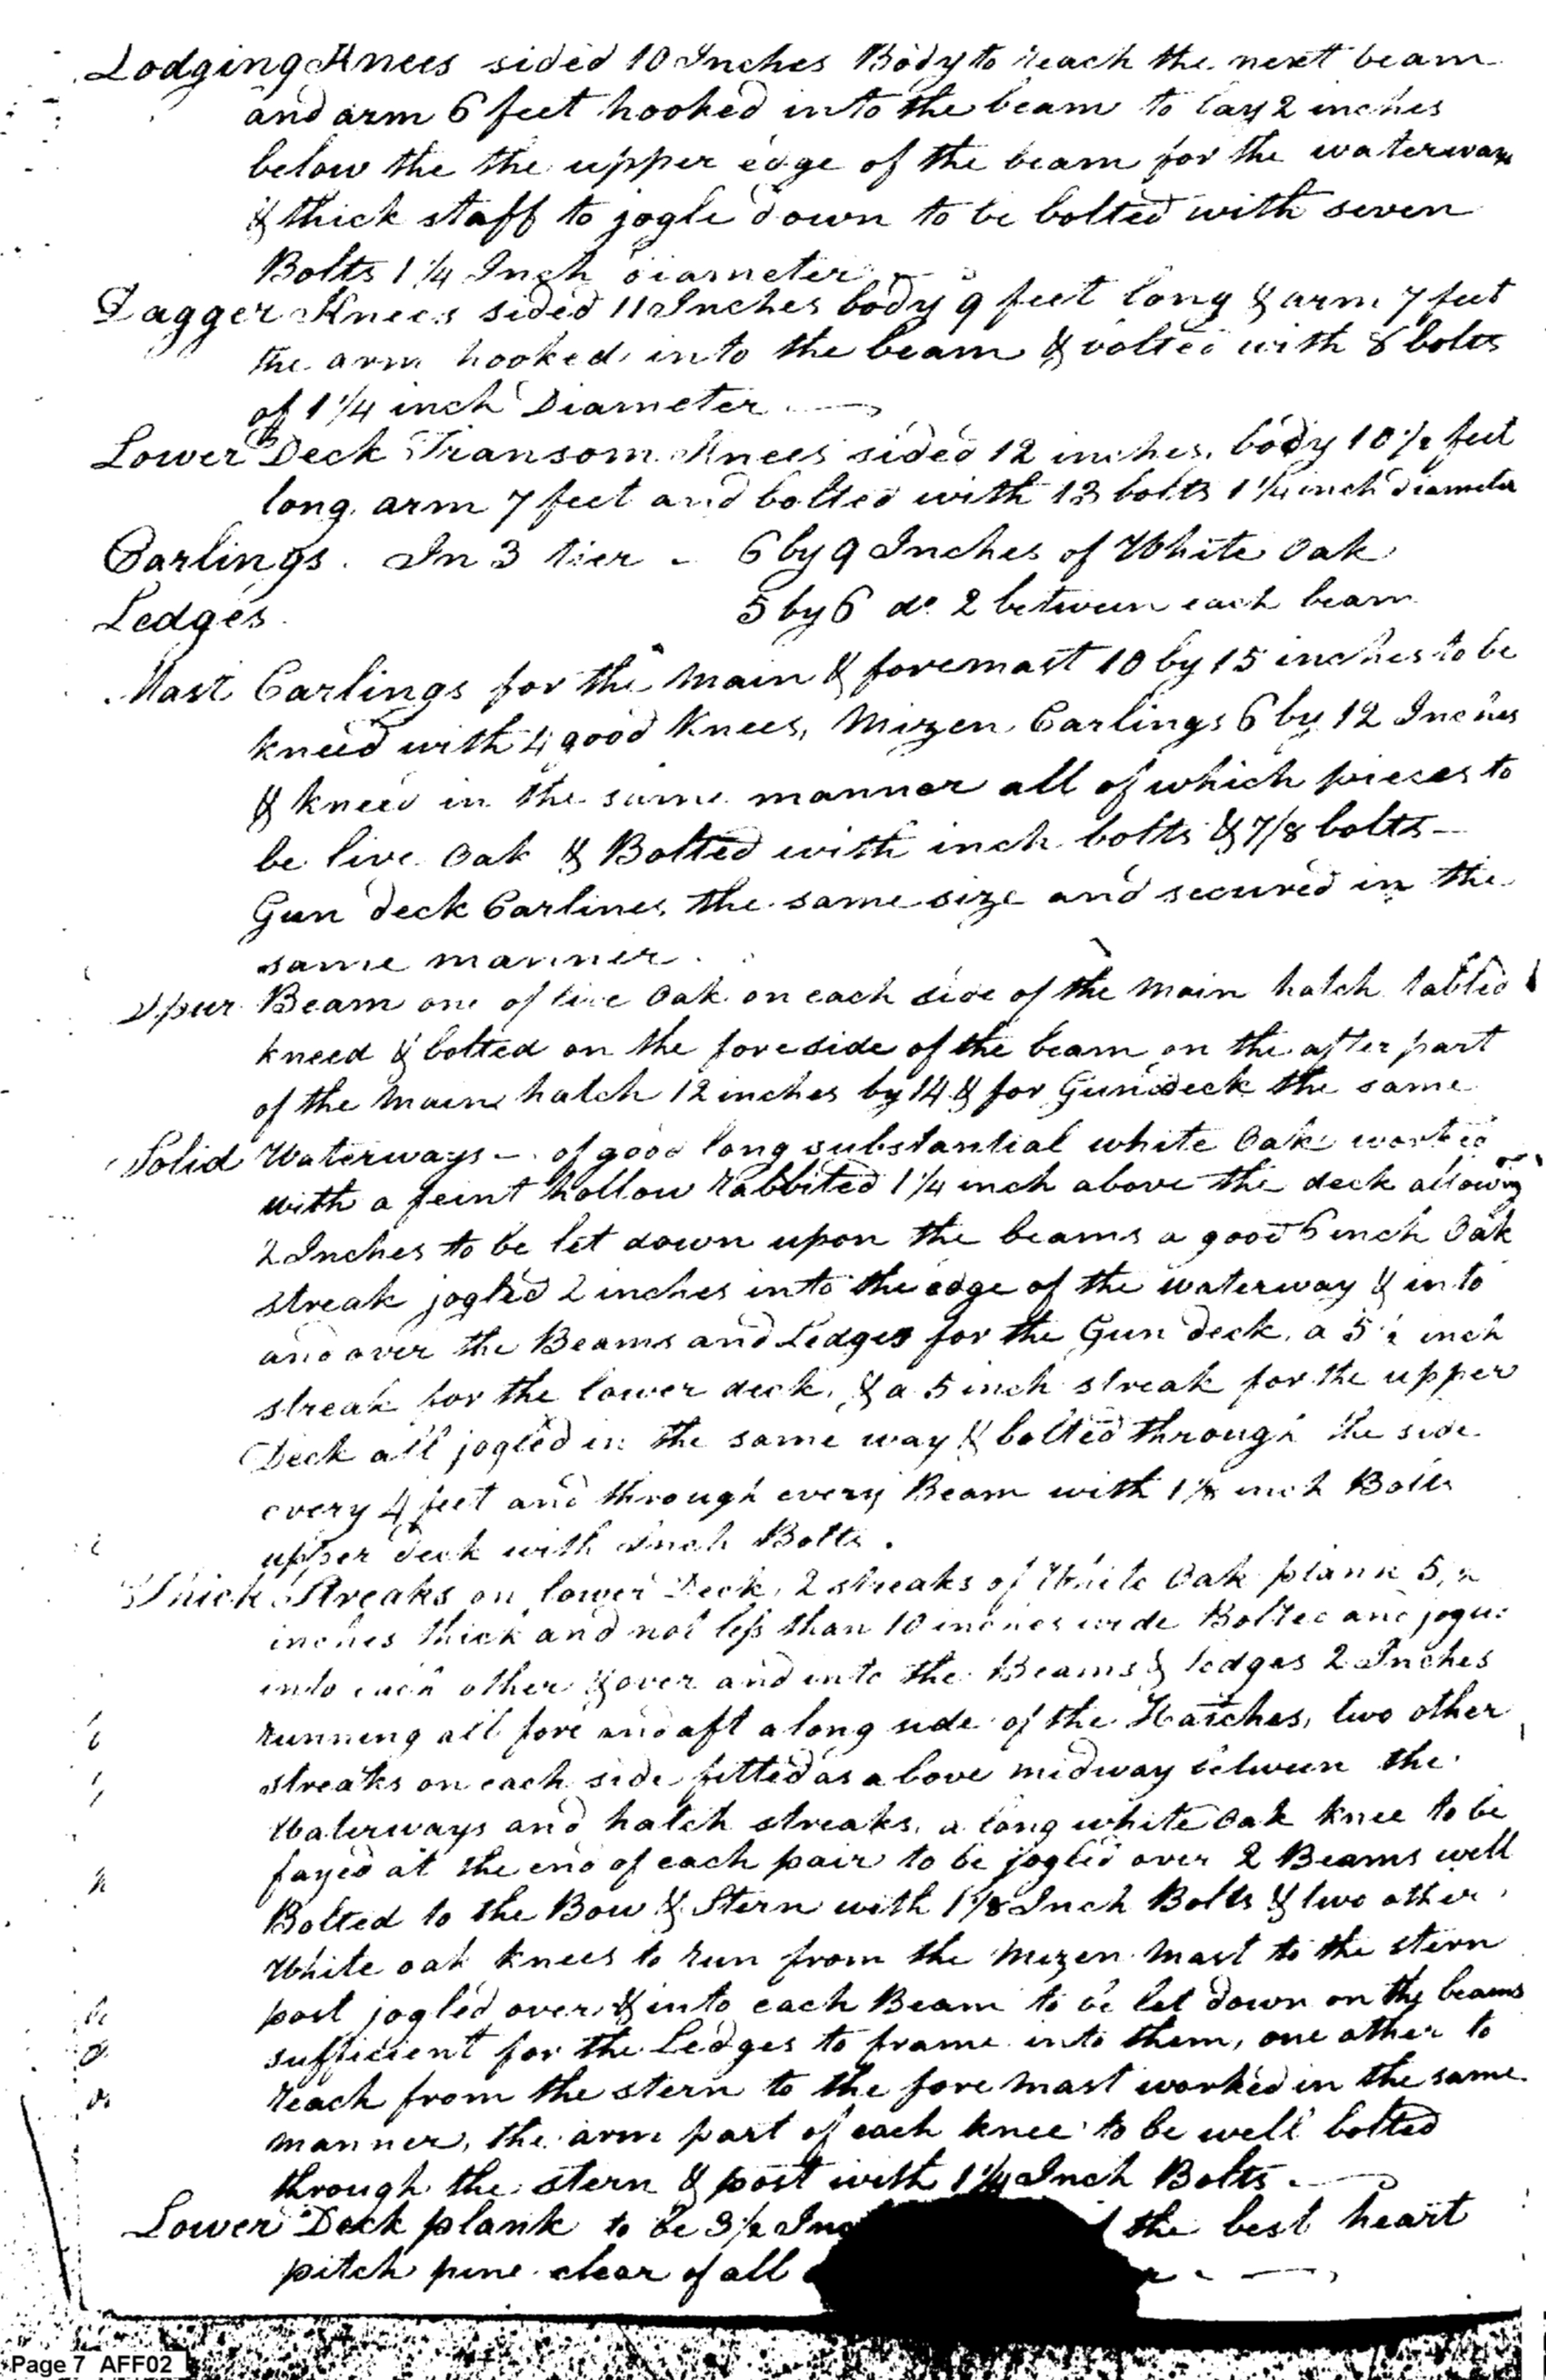 Lodging Knees sided 10 Inches Body to reach the next beam
and arm 6 feet hooked into the beam to lay 2 inches
below the the upper edge of the beam for the waterway
& thick staff to jogle down to be bolted with seven
Bolts 1 1/4 Inch diameter
Dagger Knees sided 11 Inches body 9 feet long & arm 7 feet
the arm hooked into the beam & bolted with 8 bolts
of 1 1/4 inch Diameter
Lower Deck Transom Knees sided 12 inches, body 10 1/2 feet
long arm 7 feet and bolted with 13 bolts 1 1/4 inch diameter
Carlings. In 3 tier - 6 by 9 Inches of White Oak
Ledges 5 by 6 do 2 between each beam
Mast Carlings for the main & foremast 10 by 15 inches to be
kneed with 4 good Knees, Mizen Carlings 6 by 12 Inches
& kneed in the same manner all of which pieces to
be live Oak & Bolted with inch bolts & 7/8 bolts -
Gun deck Carlines the same size and secured in the
same manner.
Spur Beam one of live Oak on each side of the Main hatch tabled
kneed & bolted on the foreside of the beam on the after part
of the Main hatch 12 inches by 14 & for Gun deck the same
Solid Waterways - of good long substantial white Oak worked
with a feint hollow rabbited 1 1/4 inch above the deck allowing
2 Inches to be let down upon the beams a good 6 inch Oak
streak jogled 2 inches into the edge of the waterway & into
and over the Beams and Ledges for the Gun deck, a 5 1/2 inch
streak for the lower deck, & a 5 inch streak for the upper
Deck all jogled in the same way & bolted through the side
every 4 feet and through every Beam with 1 1/8 inch Bolts
upper deck with Inch Bolts.
Thick Streaks on lower Deck, 2 streaks of White Oak plank 5
inches thick and not less than 10 inches wide Bolted and
into each other & over and into the Beams & ledges 2 Inches
running all fore and aft along side of the Hatches, two other
streaks on each side fitted as above midway between the
Waterways and hatch streaks, a long white Oak knee to be
fayed at the end of each pair to be jogled over 2 Beams well
Bolted to the Bow & Stern with 1 1/8 Inch Bolts & two other
White oak knees to run from the Mizen Mast to the stern
post jogled over & into each Beam to be let down on the beams
sufficient for the Ledges to frame into them, one other to
reach from the stern to the fore Mast worked in the same
manner, the arm part of each knee to be well bolted
through the stern & post with 1 1/4 Inch Bolts.
Lower Deck plank to be 3 1/2 the best heart
pitch pine clear of all
Page 7 AFF02